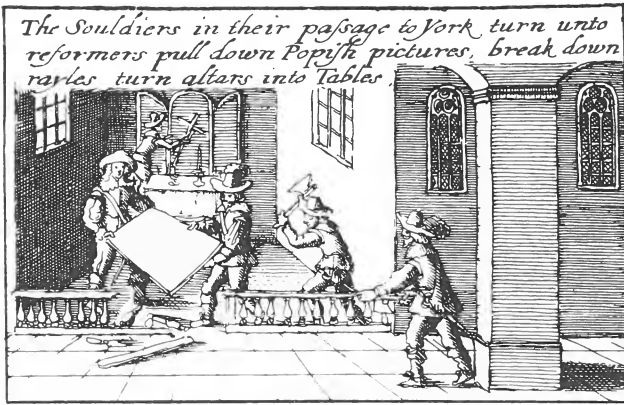 The Souldiers in their paſsage to York turn unto
reformers pull down Popiſh pictures, break down
rayles turn altars into Tables